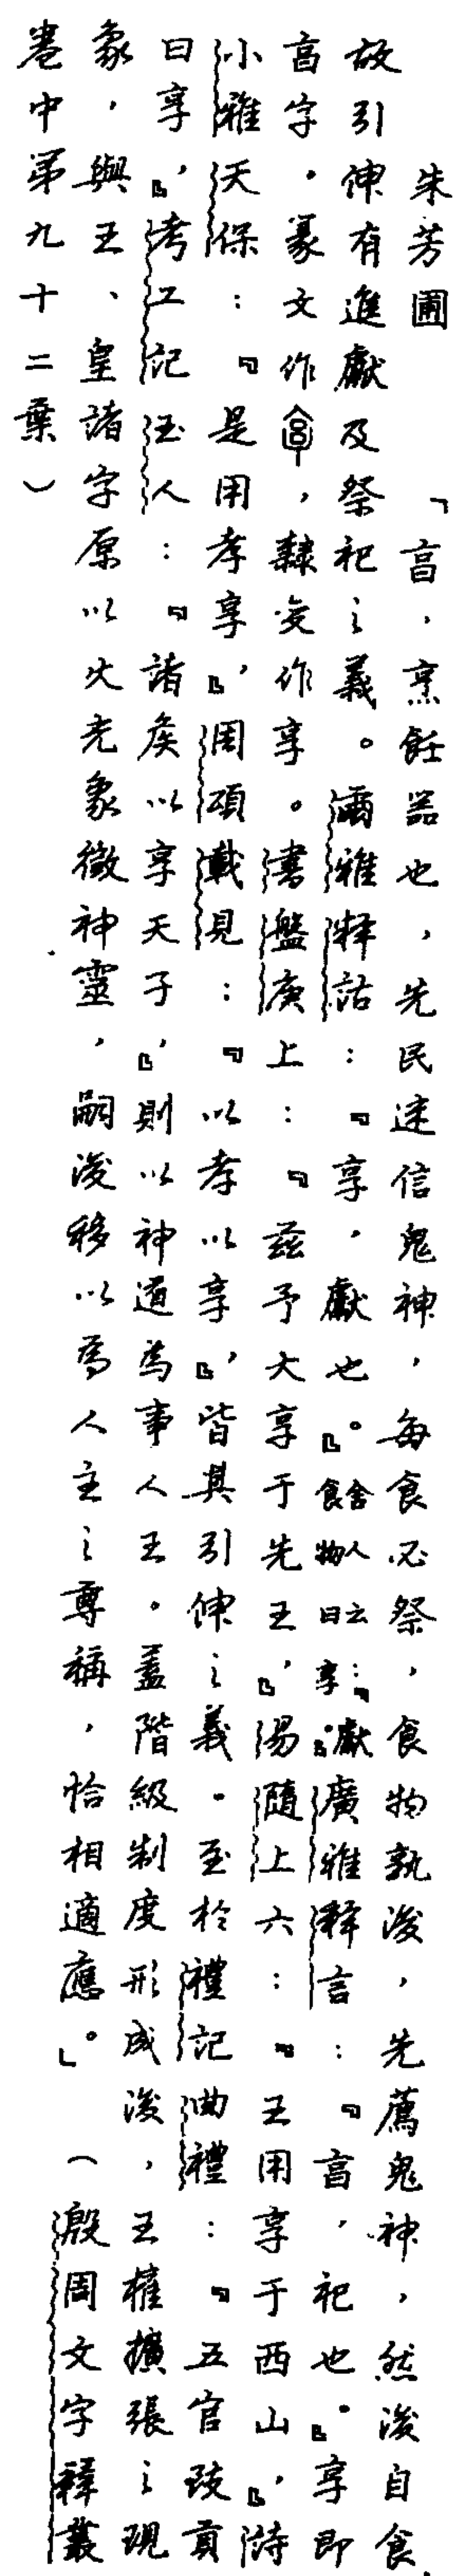 朱芳圃　「亯，烹飪器也，先民迷信鬼神，每食必祭，食物孰後，先薦鬼神，然後自食，
故引伸有進獻及祭祀之義。爾雅釋詁：『享，獻也。』舍人云：『獻食物曰享。』廣雅釋言：『亯，祀也。』享即
亯字。篆文作，隸变作享。書盤庚上：『茲予大享于先王』，易隨上六：『王用享于西山』，詩
小雅天保：『是用孝享』，周頌載見：『以孝以享』，皆其引伸之義。至於禮記曲禮：『五官致貢
曰享』，考工記玉人：『諸侯以享天子』，則以神道為事人王。蓋階級制度形成後，王權擴張之現
象，與王、皇諸字原以火光象徵神靈，嗣後移以為人主之尊稱，恰相適應。」　（殷周文字釋叢
卷中第九十二葉）